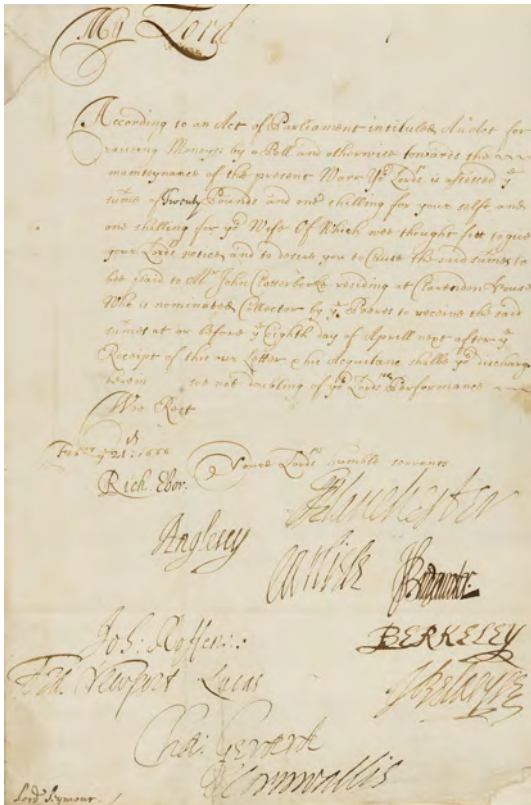 My Lord
According to an Act of Parliament intituled An Act for
raising Moneys by a Poll and otherwise towards the
mainteynance of the present Warr Yor Lordpp is assessed ye
sume of Twenty Pounds and one shilling for your selfe, and
one shilling for yor Wife Of Which wee thought fitt to give
your Lordpp notice, and to desire you to Cause the said sumes to
bee paid to Mr John Clotterbooke residing at Clarendon house
Who is nominated Collector by ye Peeres to receive the said
sumes at or before ye Eighth day of Aprill next after ye
Receipt of this our Letter, his Acquitance shalbe yor discharge
herein wee not doubting of yor Lordpps Performance
Wee Rest
ye 21th: 1666
Youre Lordpps humble servants
Rich. Ebor.
Manchester
Anglesey
Carlisle
JBridgewater.
Joh: Roffen:
BERKELEY
Fra: Newport
Lucas
JBelasyse
Cha: Gerard
Cornwallis
Lord Seymour.